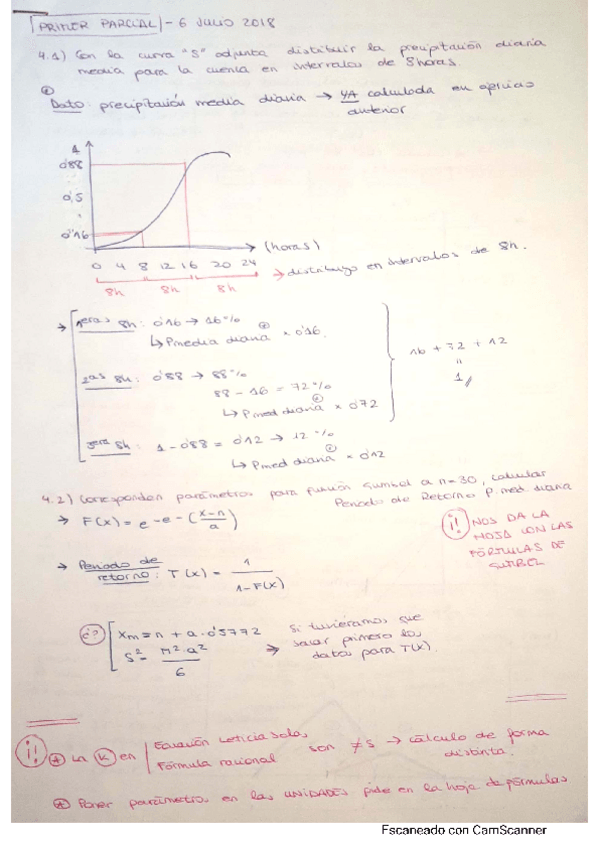 PRIMER PARCIAL - 6 JULIO 2018
4.1) Con la curva "S" adjunta distribuir la precipitación diaria
media para la cuenca en intervalos de 8 horas.
Dato: precipitación media diaria → YA calculada en
anterior
1
0'88
0,5
0'16
(horas)
0 4 8 12 16 20 24
8h 8h 8h
→ distribuyo en intervalos de 8h.
→ 1eras 8h: 0'16 → 16%
↳ Pmedia diaria x 0'16.
2as 8h: 0'88 → 88%
88 - 16 = 72%
↳ P med diaria x 0'72
3eras 8h: 1 - 0'88 = 0'12 → 12%
↳ P med diaria x 0'12
16 + 72 + 12
"
1
4.2) Corresponden parámetros para función Gumbel a n=30, calcular
Periodo de Retorno P. med. diaria
→ F(x) = e - e - (x-n/a)
¡! NOS DA LA
HOJA CON LAS
FÓRMULAS DE
GUMBEL
→ Periodo de
retorno: T(x) = 1/1-F(x)
¿? Xm = n + a · 0'5772
S² = π²·a²/6
→ Si tuviéramos que
sacar primero los
datos para T(x).
¡! * La K en Ecuación
Fórmula racional
son ≠s → cálculo de forma
distinta.
* Poner parámetros en las UNIDADES pide en la hoja de fórmulas
Escaneado con CamScanner